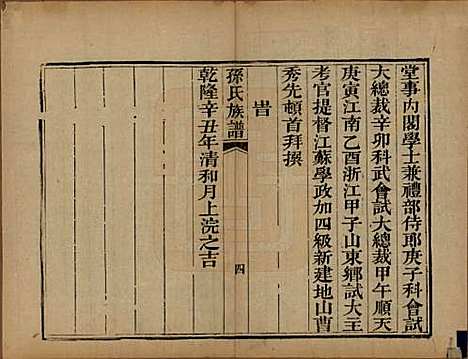 堂事內閣學士兼禮部侍郎庚子科會試
大總裁辛卯科武會試大總裁甲午順天
庚寅江南乙酉浙江甲子山東鄉試大主
考官提督江蘇學政加四級新建地山曹
秀先頓首拜撰
旹
孫氏族譜
四
乾隆辛丑年清和月上浣之吉